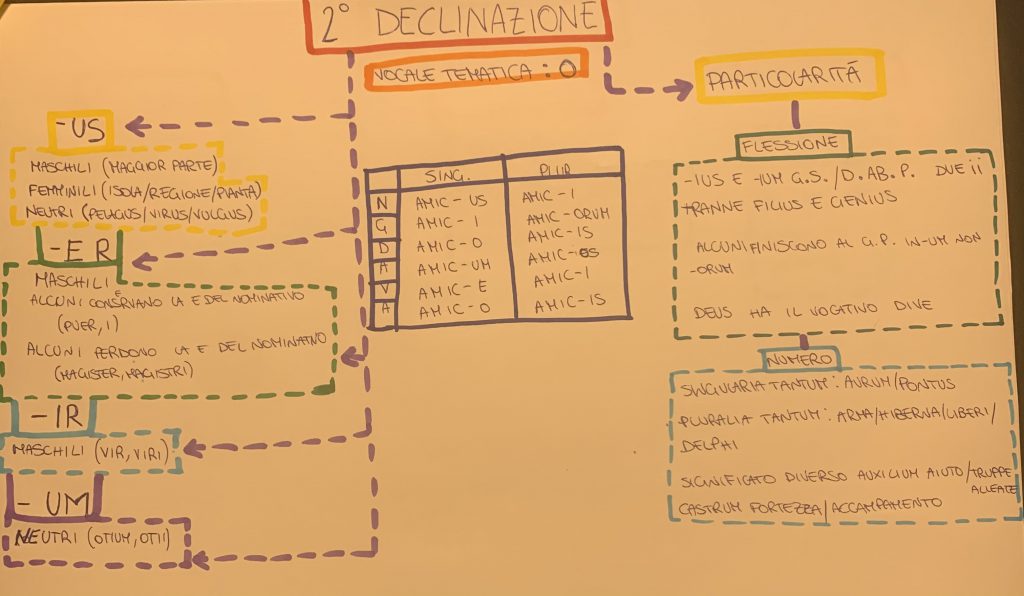 2° DECLINAZIONE
VOCALE TEMATICA : O
-US
MASCHILI (MAGGIOR PARTE)
FEMMINILI (ISOLA/REGIONE/PIANTA)
NEUTRI (PELAGUS/VIRUS/VULGUS)
-ER
MASCHILI
ALCUNI CONSERVANO LA E DEL NOMINATIVO
(PUER, I)
ALCUNI PERDONO LA E DEL NOMINATIVO
(MAGISTER, MAGISTRI)
-IR
MASCHILI (VIR, VIRI)
-UM
NEUTRI (OTIUM, OTII)
SING. PLUR
N AMIC-US AMIC-I
G AMIC-I AMIC-ORUM
D AMIC-O AMIC-IS
A AMIC-UM AMIC-OS
V AMIC-E AMIC-I
A AMIC-O AMIC-IS
PARTICOLARITÁ
FLESSIONE
-IUS E -IUM G.S./D.AB.P. DUE ii
TRANNE FILIUS E GENIUS
ALCUNI FINISCONO AL G.P. IN -UM NON
-ORUM
DEUS HA IL VOCATIVO DIVE
NUMERO
SINGULARIA TANTUM : AURUM/PONTUS
PLURALIA TANTUM : ARMA/HIBERNA/LIBERI/
DELPHI
SIGNIFICATO DIVERSO AUXILIUM AIUTO/TRUPPE
ALLEATE
CASTRUM FORTEZZA/ACCAMPAMENTO